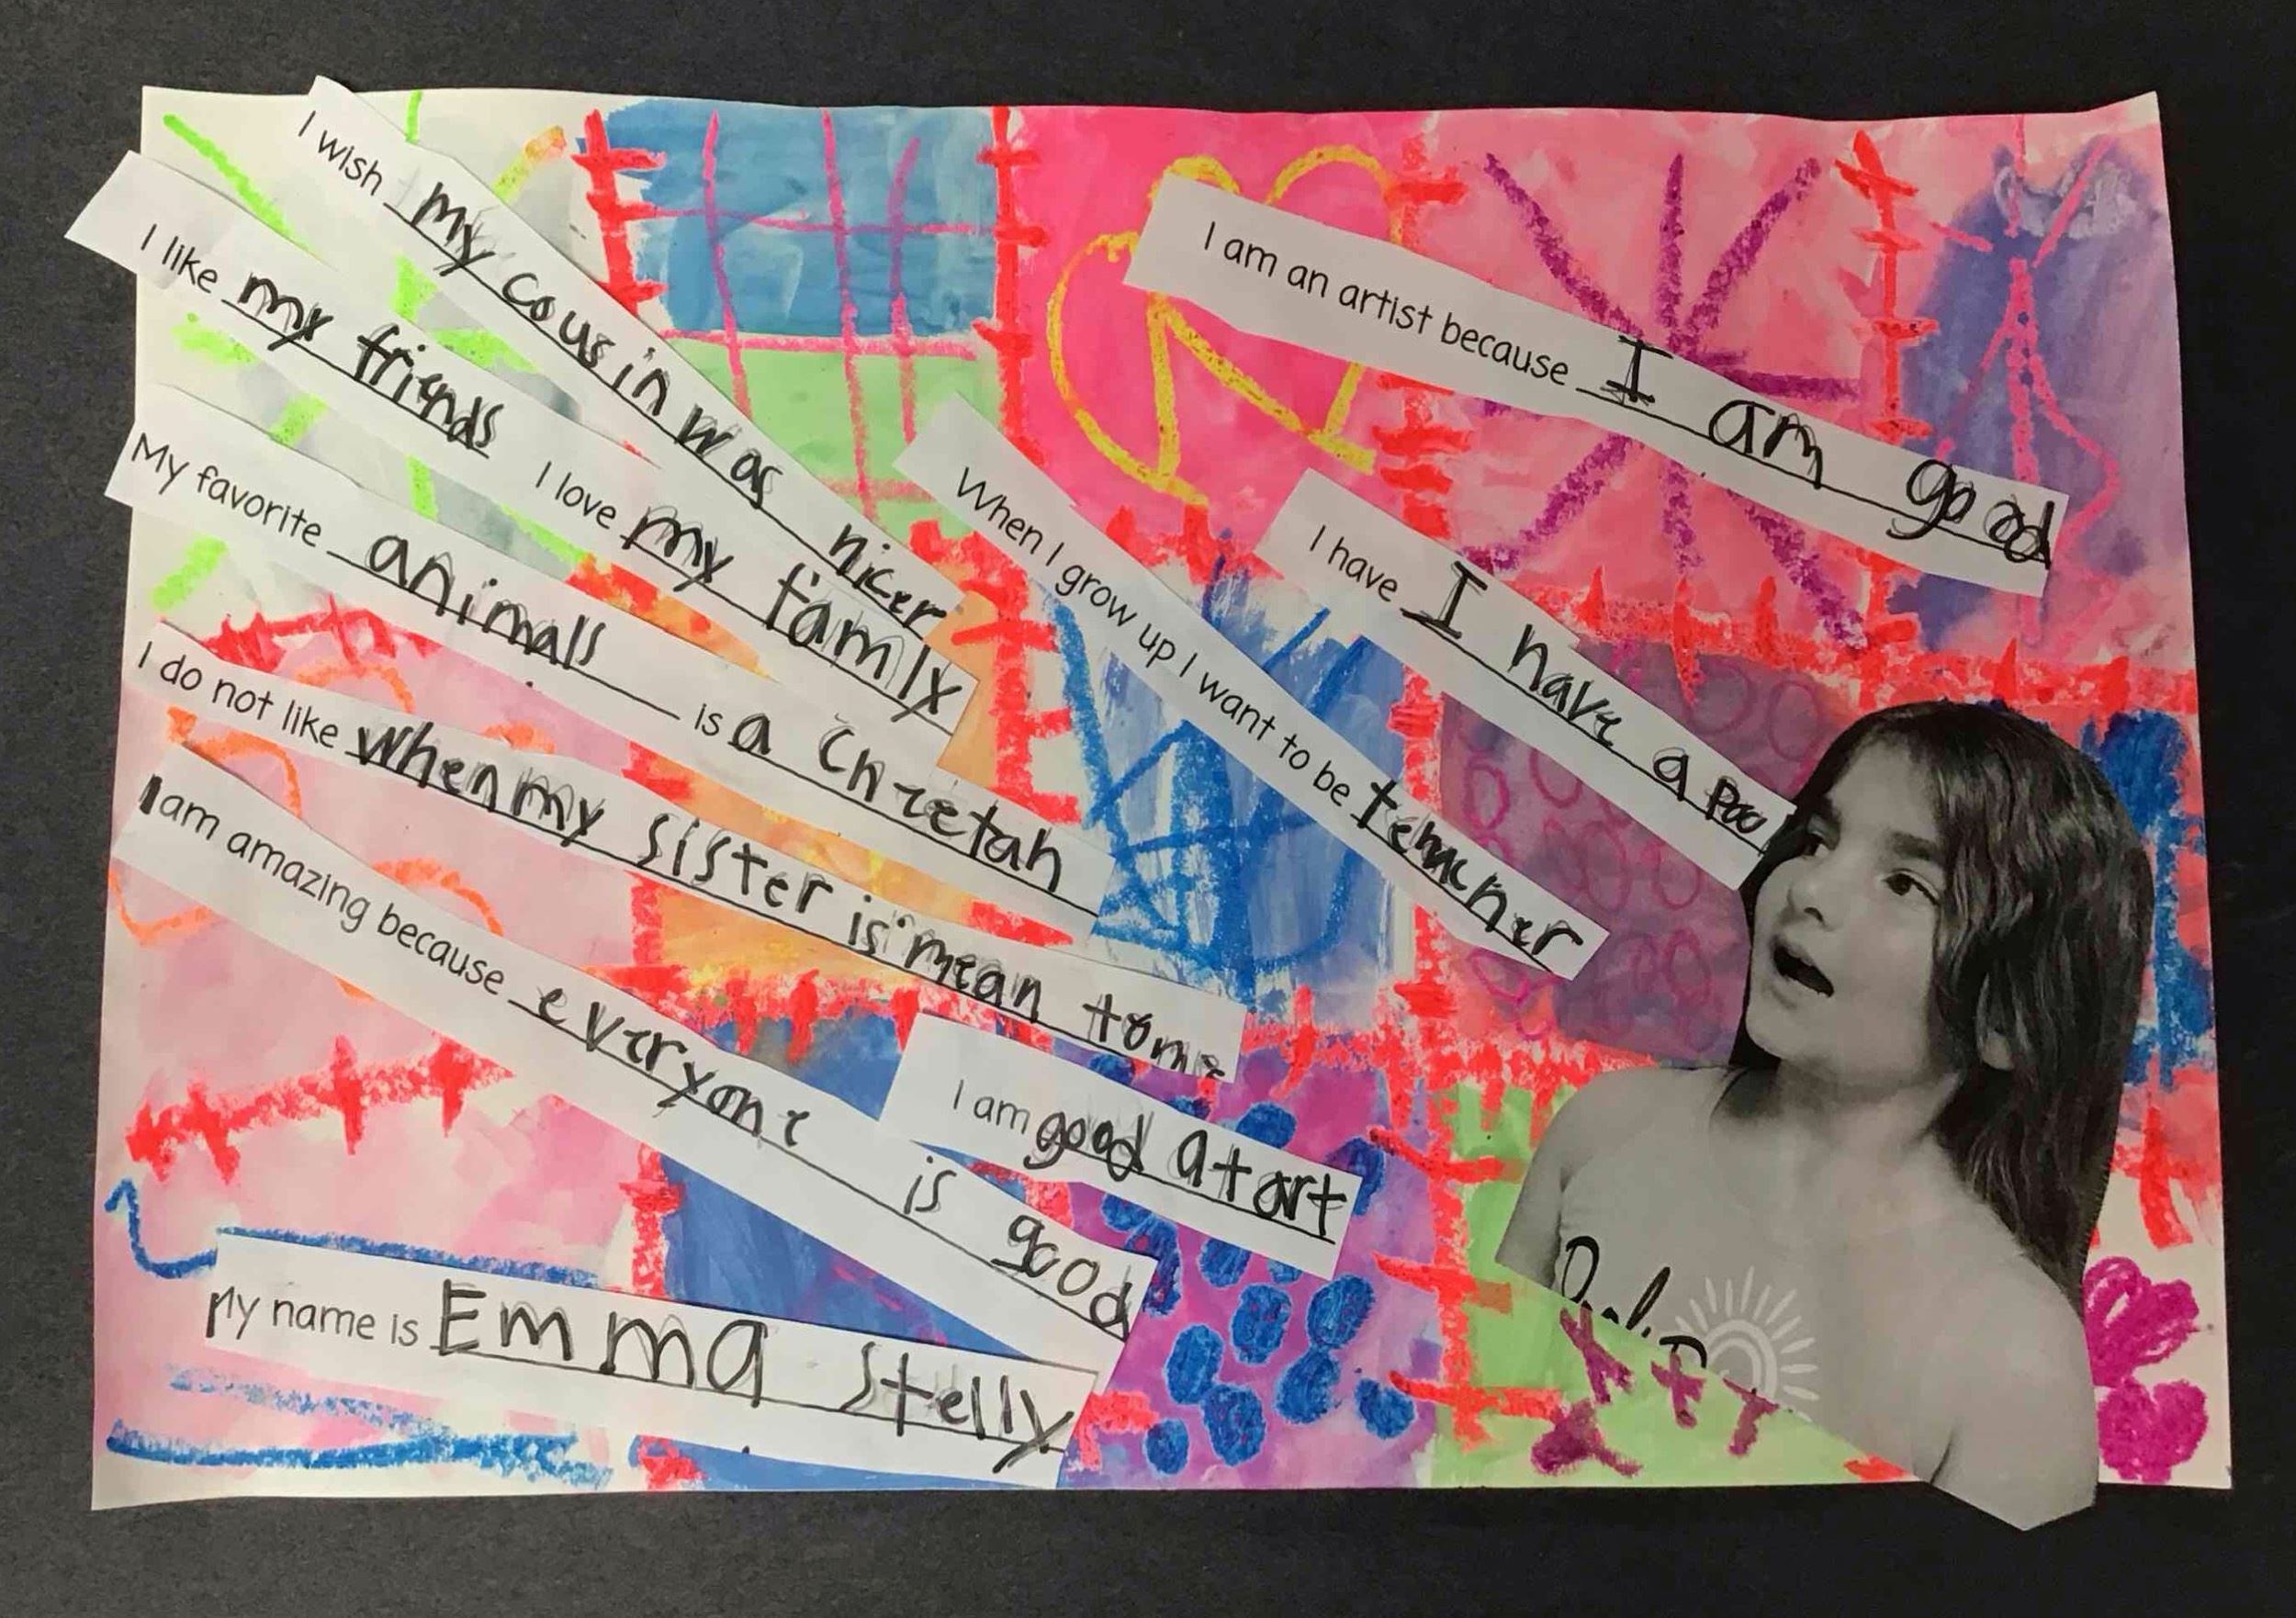 I wish my cousin was nicer
I like my friends
I love my family
My favorite animalls is a cheetah
I do not like when my sister is mean to me
I am amazing because everyone is good
My name is Emma Stelly
I am good at art
When I grow up I want to be teacher
I have I have a poo
I am an artist because I am good